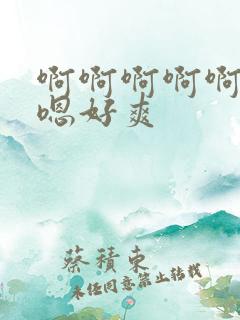 啊啊啊啊啊
嗯好爽
蔡積東
未经同意禁止转载